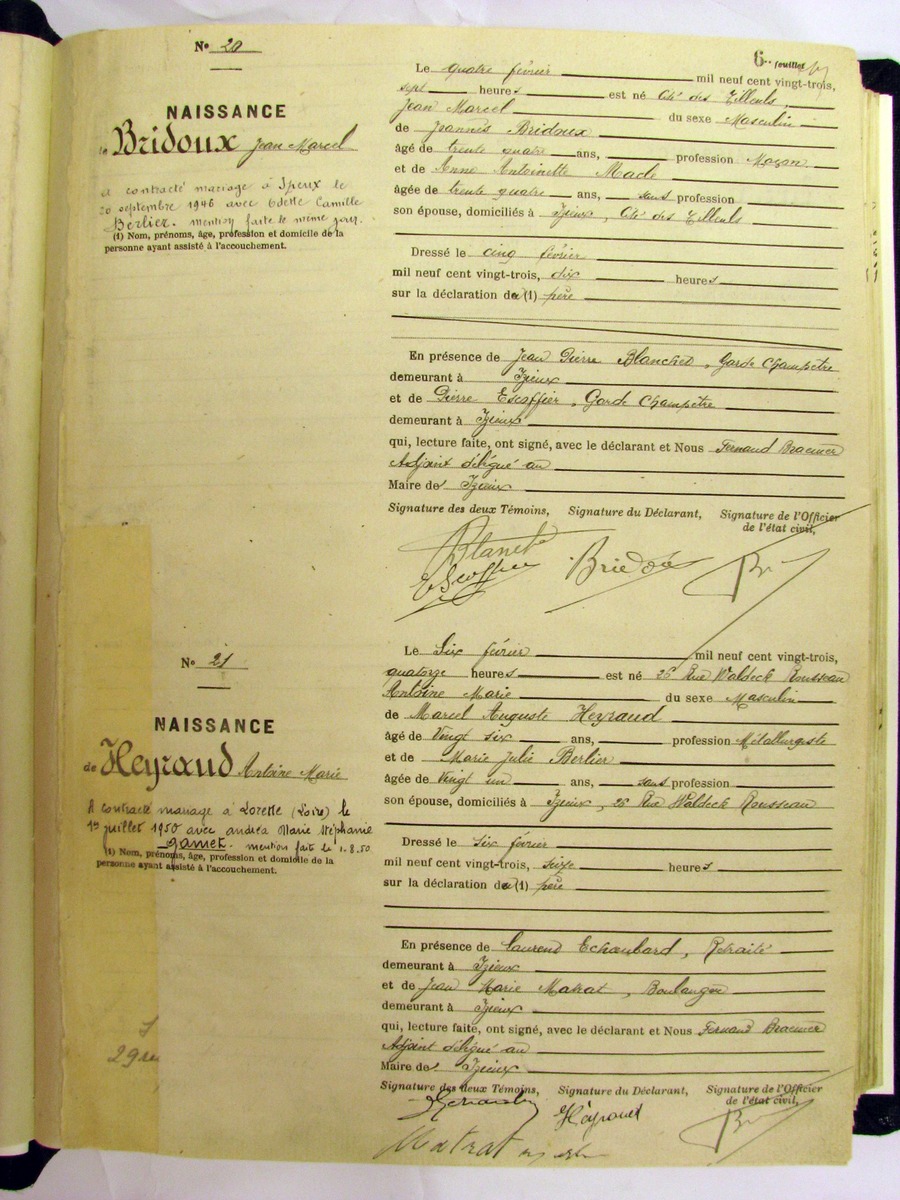 6.. feuillet
Nº 20
NAISSANCE
de Bridoux Jean Marcel
A contracté mariage à Izieux le
20 septembre 1946 avec Odette Camille
Berlier. mention faite le même jour.
(1) Nom, prénoms, âge, profession et domicile de la
personne ayant assisté à l'accouchement.
Le quatre février mil neuf cent vingt-trois,
sept heures est né Cité des Tilleuls,
Jean Marcel du sexe Masculin
de Joannès Bridoux
âgé de trente quatre ans, profession Maçon
et de Anne Antoinette Macle
âgée de trente quatre ans, sans profession
son épouse, domiciliés à Izieux, Cité des Tilleuls
Dressé le cinq février
mil neuf cent vingt-trois, dix heures
sur la déclaration du (1) père
En présence de Jean Pierre Blanchet, Garde Champêtre
demeurant à Izieux
et de Pierre Escoffier, Garde Champêtre
demeurant à Izieux
qui, lecture faite, ont signé, avec le déclarant et Nous Fernand Braemer
Adjoint délégué au
Maire de Izieux
Signature des deux Témoins, Signature du Déclarant, Signature de l'Officier
de l'état civil,
Blanchet
Escoffier
Bridoux
Br
Nº 21
NAISSANCE
de Heyraud Antoine Marie
A contracté mariage à Lorette (Loire) le
1er juillet 1950 avec andréa Marie Stéphanie
gamet. mention fait le 1.8.50
(1) Nom, prénoms, âge, profession et domicile de la
personne ayant assisté à l'accouchement.
Le Six février mil neuf cent vingt-trois,
quatorze heures est né 26 Rue Waldeck Rousseau
Antoine Marie du sexe Masculin
de Marcel Auguste Heyraud
âgé de Vingt six ans, profession Métallurgiste
et de Marie Julie Berlier
âgée de Vingt un ans, sans profession
son épouse, domiciliés à Izieux, 26 Rue Waldeck Rousseau
Dressé le Six février
mil neuf cent vingt-trois, seize heures
sur la déclaration du (1) père
En présence de Laurent Echaubard, Retraité
demeurant à Izieux
et de Jean Marie Matrat, Boulanger
demeurant à Izieux
qui, lecture faite, ont signé, avec le déclarant et Nous Fernand Braemer
Adjoint délégué au
Maire de Izieux
Signature des deux Témoins, Signature du Déclarant, Signature de l'Officier
de l'état civil,
Heyraud
Br
Matrat
29